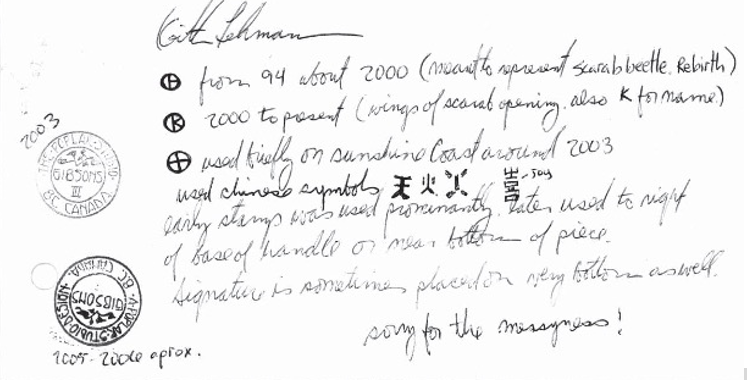 Keith Lehman
from 94 about 2000 (meant to represent scarab beetle. Rebirth)
K 2000 to present (wings of scarab opening. also K for name.)
used briefly on sunshine Coast around 2003
used chinese symbols 天 火 -joy
early stamps was used prominantly. later used to right
of base of handle or near bottom of piece.
Signature is sometimes placed on very bottom as well.
sorry for the messyness!
2003
THE·POPLAR·STUDIO
GIBSONS
III
B.C. CANADA
POPLAR·STUDIO·DESIGN
GIBSONS
B.C. CANADA
2005-2006 aprox.